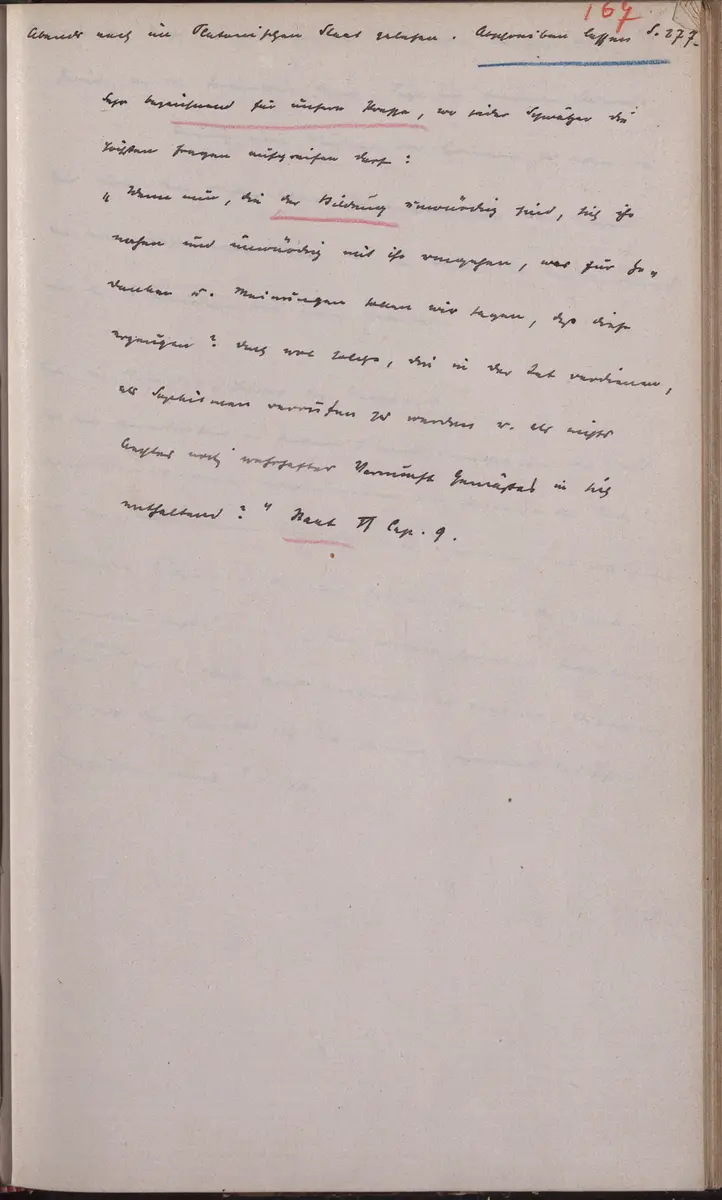 167
Abends noch im Platonischen Staat gelesen. Abschreiben lassen S. 277.
Sehr bezeichnend für unsere Presse, wo jeder Schwätzer die
höchsten Fragen aufgreifen darf:
"Wenn nun, die der Bildung unwürdig sind, sich ihr
nahen und unwürdig mit ihr umgehen, was für Ge„
danken u. Meinungen sollen wir sagen, daß diese
erzeugen? doch wol solche, die in der Tat verdienen,
als Sophismen verrufen zu werden u. als nichts
Aechtes noch wahrhafter Vernunft Gemäßes in sich
enthaltend?" Staat VI Cap. 9.